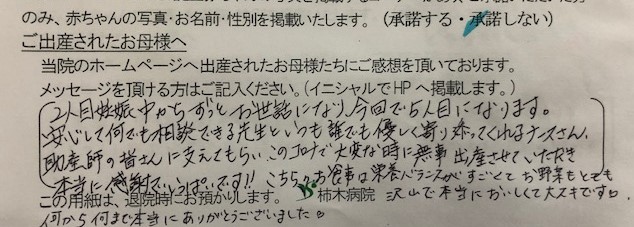 のみ、赤ちゃんの写真・お名前・性別を掲載いたします。（承諾する・承諾しない）
ご出産されたお母様へ
当院のホームページへ出産されたお母様たちにご感想を頂いております。
メッセージを頂ける方はご記入ください。（イニシャルでHPへ掲載します。）
2人目妊娠中からずっとお世話になり、今回で5人目になります。
安心して何でも相談できる先生といつも誰でも優しく寄り添ってくれるナースさん、
助産師の皆さんに支えてもらい、このコロナで大変な時に無事出産させていただき
本当に感謝でいっぱいです!! こちらのお食事は栄養バランスがすごくとてお野菜もとても
この用紙は、退院時にお預かりします。 柿木病院 沢山で本当においしくて大スキです
何から何まで本当にありがとうございました